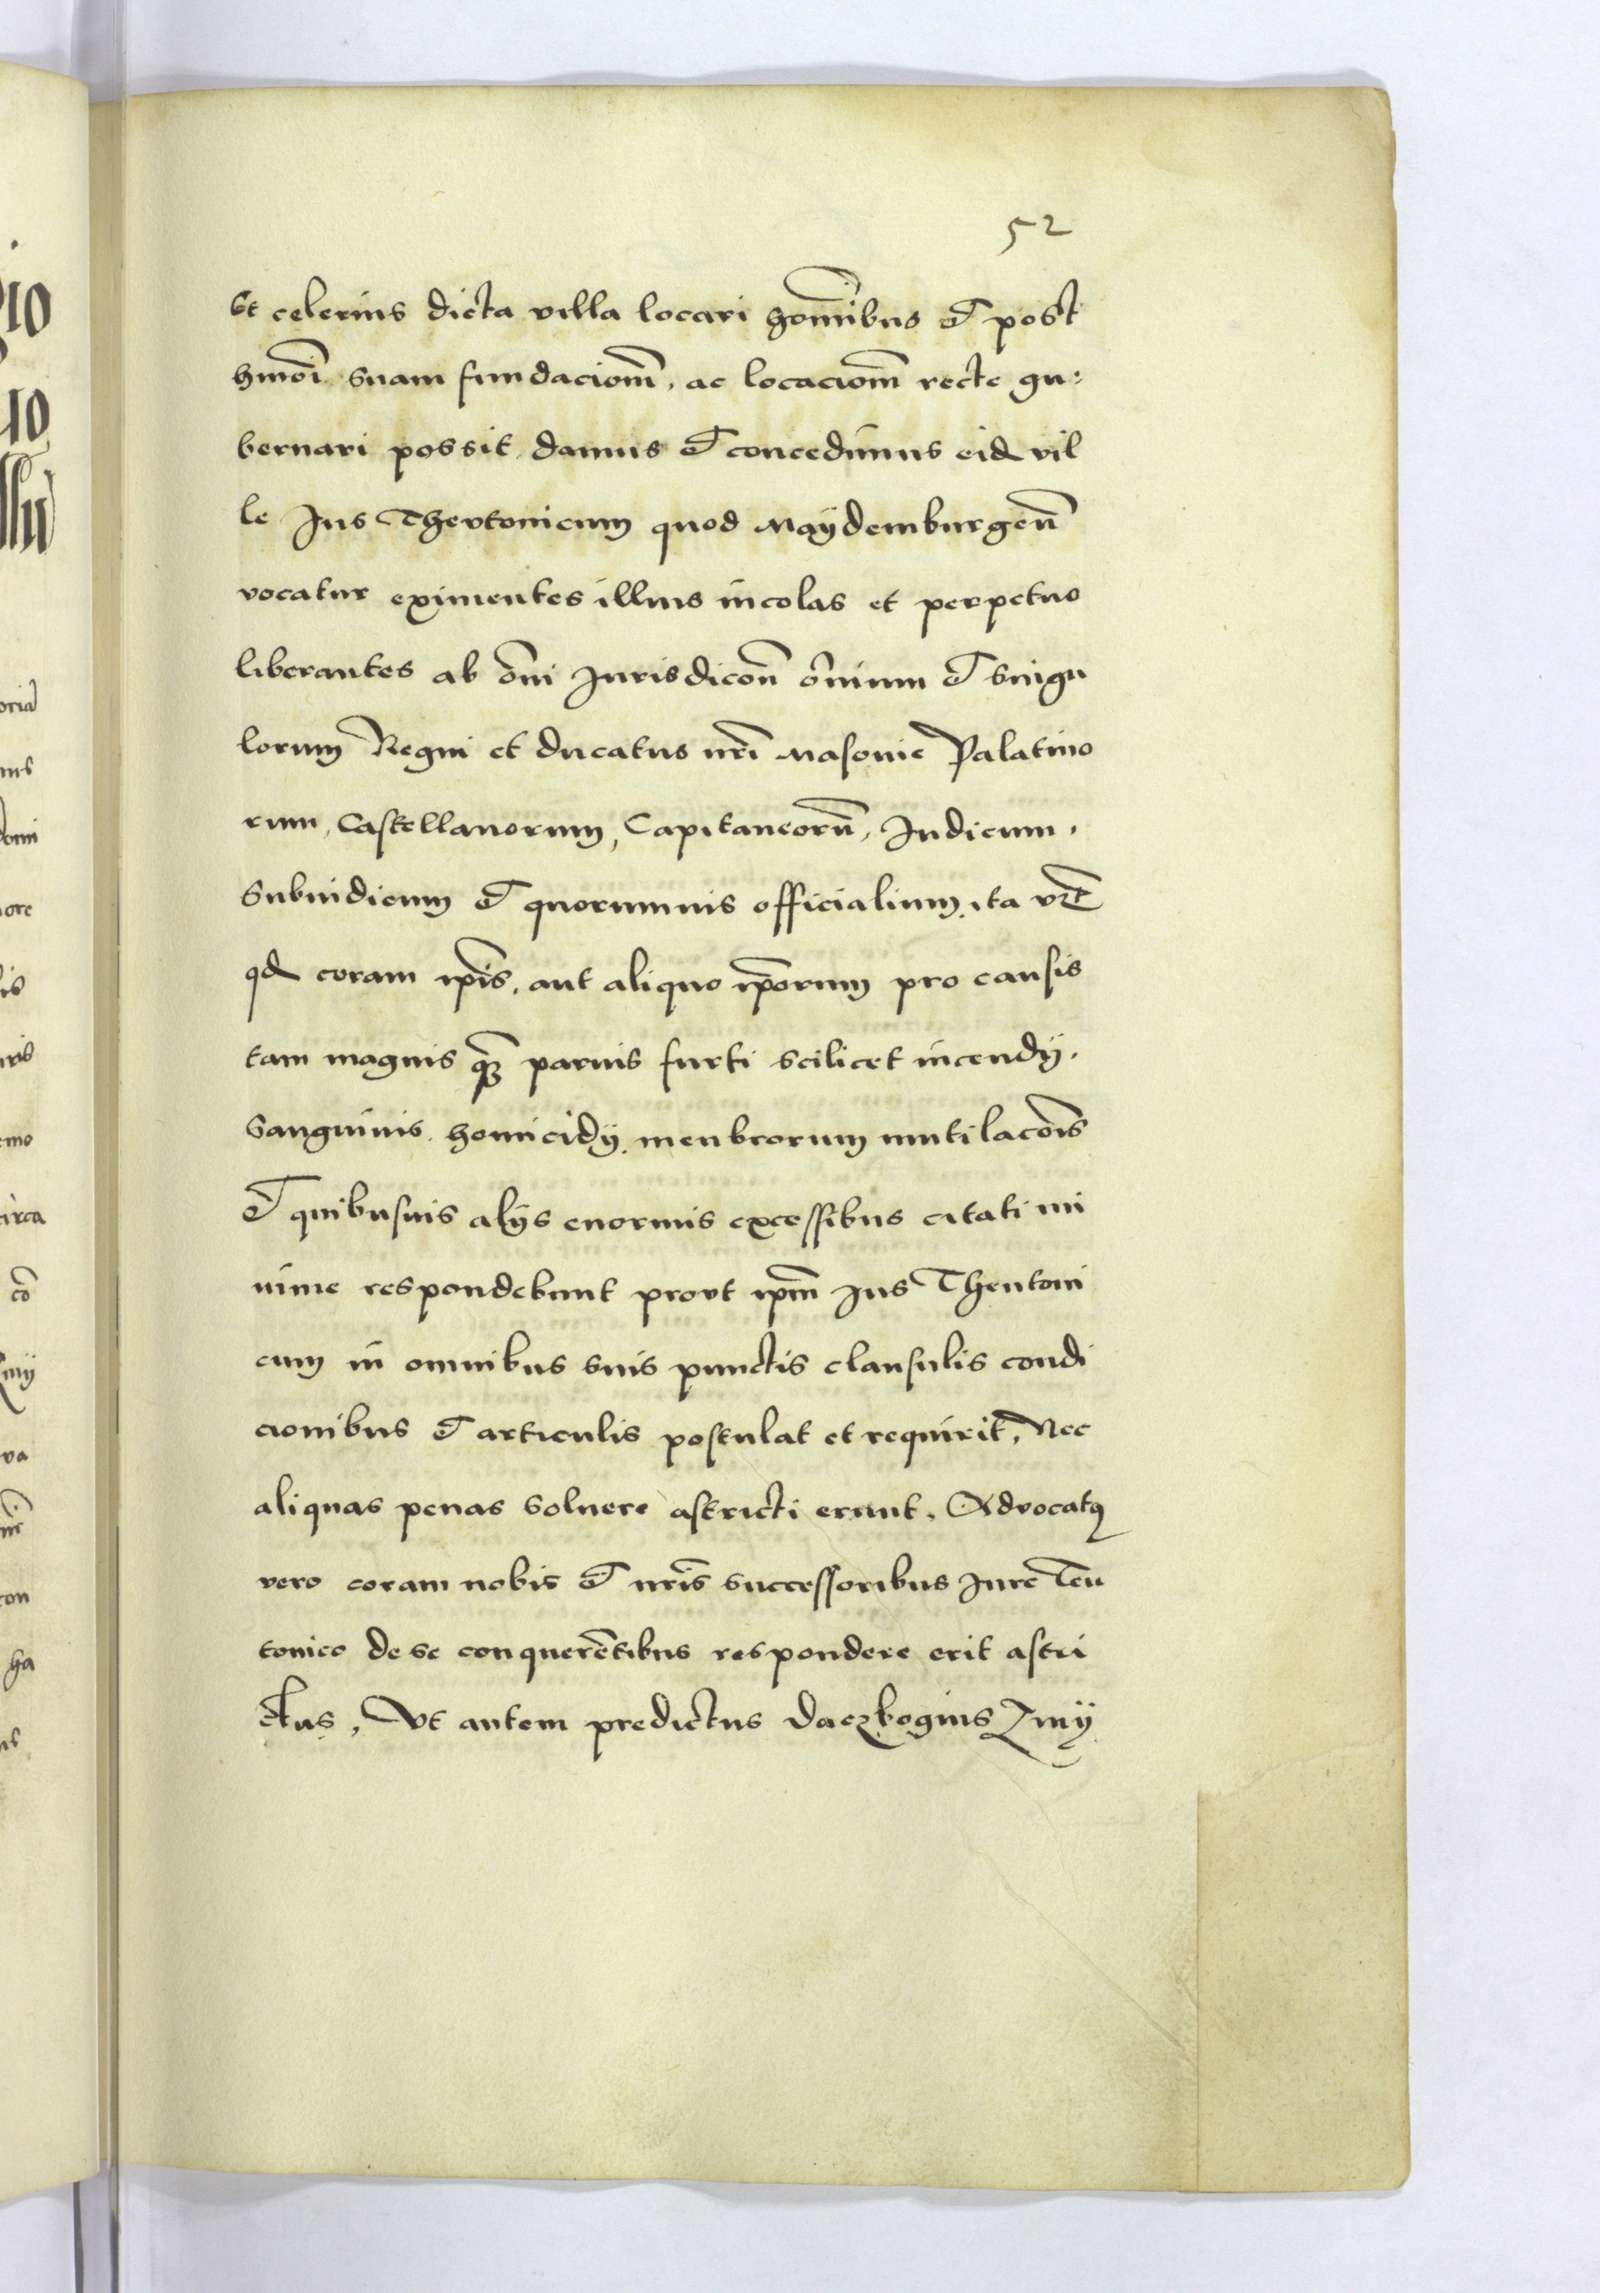 52
Et celerius dicta villa locari hominibus et post
hmoi suam fundaciom, ac locaciom recte gu:
bernari possit damus et concedimus eid vil
le Jus Thevtonicum quod Maÿdemburgen̄
vocatur eximentes illius incolas et perpetuo
liberantes ab om̄i Jurisdicōn om̄ium et singu
lorum Regni et ducatus nr̄i Masovie Palatino
rum, Castellanorum, Capitaneorū, Judicum,
Subiudicum et quorumuis officialium, ita vt
qd coram ip̄is, aut aliquo ip̄orum pro causis
tam magnis q̄ȝ paruis furti scilicet incendÿ,
Sanguinis, homicidÿ, menbrorum mutilacōis
et quibusuis alÿs enormis excessibus citati mi
nime respondebunt provt ip̄m Jus Theutoni
cum in omnibus suis punctis clausulis condi
cionibus et articulis postulat et requirit, Nec
aliquas penas soluere astricti erunt, Advocatꝯ
vero coram nobis et nr̄is successoribus Jure Teu
tonico de se conquerētibus respondere erit astri
ctus, Vt autem predictus Daczbogius Zmÿ